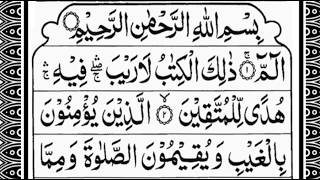 بِسْمِ اللهِ الرَّحْمٰنِ الرَّحِيْمِ
الٓمّٓ ۚ ۝۱ ذٰلِكَ الْكِتٰبُ لَا رَيْبَ ۛۖ فِيْهِ ۛۚ
هُدًى لِّلْمُتَّقِيْنَ ۙ ۝۲ الَّذِيْنَ يُؤْمِنُوْنَ
بِالْغَيْبِ وَ يُقِيْمُوْنَ الصَّلٰوةَ وَ مِمَّا